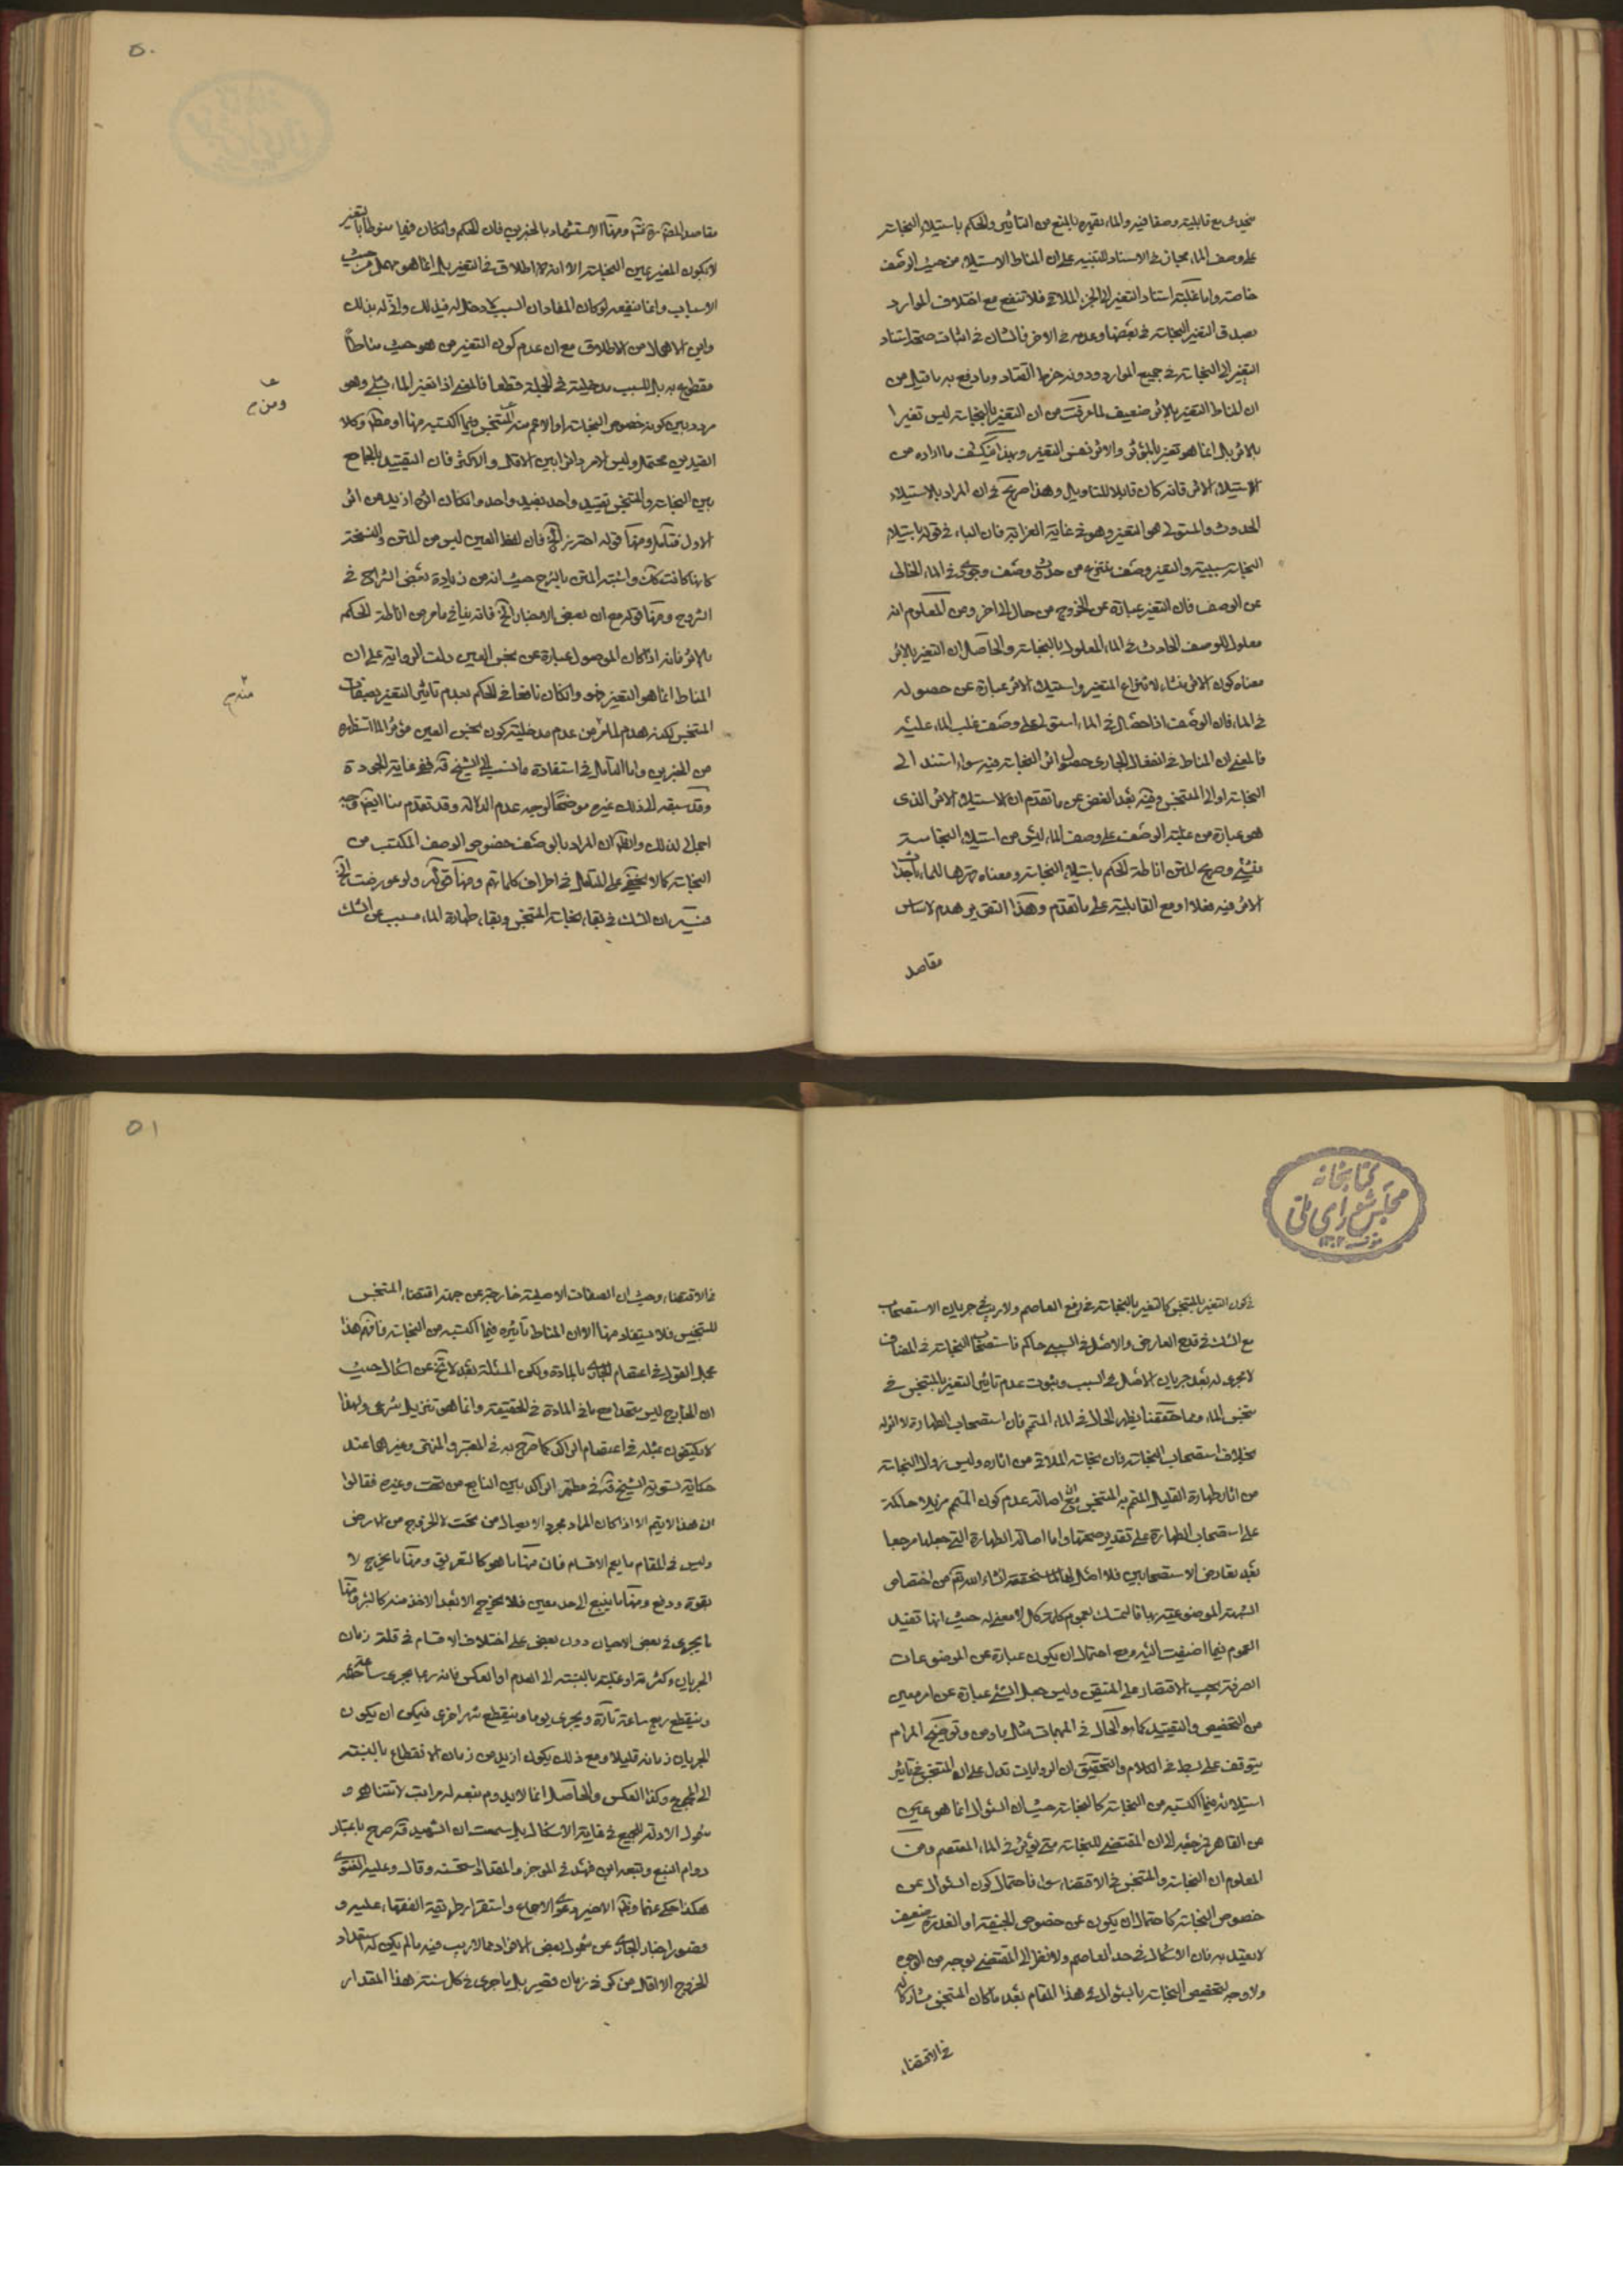 على وصف الماء مجاز في الاسناد للتنبيه على ان المناط الاستيلاء من حيث الوصف
خاصة واما غلبة استناد التغير الى الجزء الملاقي فلا تنفع مع اختلاف الموارد
بصدق التغير بالنجاسة في بعضها وعدمه في الاخر فالشان في اثبات صحة استناد
التغير الى النجاسة في جميع الموارد ودونه خرط القتاد وما دفع به ما قيل من
ان المناط التغير بالاثر ضعيف لما عرفت من ان التغير بالنجاسة ليس تغيرا
بالاثر بل انما هو تغير بالمؤثر والاثر نفس التغير وبهذا ينكشف ما اراده من
الاستيلاء الاثر فانه كان قابلا للتاويل وهذا صريح في ان المراد بالاستيلاء
الحدوث والمستولي هو التغير وهو في غاية الغرابة فان الباء في قوله باستيلاء
النجاسة سببية والتغير وصف منتزع من حدوث وصف وجودي في الماء الخالي
عن الوصف فان التغير عبارة عن الخروج من حال الى اخر ومن المعلوم انه
معلول للوصف الحادث في الماء المعلول بالنجاسة والحاصل ان التغير بالاثر
معناه كون الاثر منشاء لانتزاع المتغير واستيلاء الاثر عبارة عن حصوله
في الماء فان الوصف اذا حصل في الماء استولى على وصف غلب الماء عليه
فالمعنى ان المناط في انفعال الجاري حصول اثر النجاسة فيه سواء استند الى
النجاسة او الى المتنجس وفيه بعد الغض عن ما تقدم ان الاستيلاء الاثر الذي
هو عبارة من غلبة الوصف على وصف الماء ليس من استيلاء النجاسة
بشيء وصريح المتن اناطة الحكم باستيلاء النجاسة ومعناه قهرها للماء باحداث
الاثر فيه فعلا او مع القابلية على ما تقدم وهذا التقرير هدم لاساس
مقاصد
٥٠
لا يكون المغير عين النجاسة الا انه لا اطلاق في التغير بل انما هو مهمل من حيث
الاسباب وانما ينفعه لو كان المفاد ان السبب لا دخل له في ذلك وانى له بذلك
واين الاهمال من الاطلاق مع ان عدم كون التغير من هو حيث مناطا
مقطوع به بل للسبب مدخلية في الجملة قطعا فالمعنى اذا تغير الماء بشيء وهو
مردد بين كونه خصوص النجاسة او الاعم منه المتنجس فيما اكتسبه منها او مطلقا وكلا
القيدين محتمل وليس الامر دائرا بين الاقل والاكثر فان التقييد بالجامع
بين النجاسة والمتنجس تقييد واحد بقيد واحد وان كان اثره ازيد من اثر
الاول فتامل ومنها قوله احترز الخ فان لفظ العين ليس من المتن والنسخة
كانها كانت كك واشتبه المتن بالشرح حيث انه من زيادة بعض الشراح في
الشروح ومنها قوله مع ان بعض الاخبار الخ فانه ينافي ما مر من اناطة الحكم
بالاثر فانه اذا كان الموصول عبارة عن نجس العين دلت الرواية على ان
المناط انما هو التغير فهو وان كان نافعا في الحكم بعدم تاثير التغير بصفات
المتنجس لكنه هدم لما مر من عدم مدخلية كون نجس العين مؤثرا لما استظهره
من الخبرين واما التامل في استفادة ما نسب الى الشيخ قده ففي غاية الجودة
وقد سبقه الى ذلك غيره موضحا لوجه عدم الدلالة وقد تقدم منا ايضا وجه
اجمالي لذلك والظاهر ان المراد بالوصف خصوص الوصف المكتسب من
النجاسة كما لا يخفى على المتامل في اطراف كلماتهم ومنها قوله ولو عورضت الخ
فيه ان الشك في بقاء نجاسة المتنجس وبقاء طهارة الماء مسبب عن الشك
كتابخانه
مجلس شورای ملی
في كون التغير بالمتنجس كالتغير بالنجاسة في رفع العاصم ولا ريب في جريان الاستصحاب
مع الشك في قدح العارض والاصل في السبب حاكم فاستصحاب النجاسة في المضاف
لا يجري له بعد جريان الاصل في السبب وثبوت عدم تاثير التغير بالمتنجس في
تنجس الماء ومما حققنا يظهر الحال في الماء المتمم فان استصحاب الطهارة لا اثر له
بخلاف استصحاب النجاسة فان نجاسة الملاقي من اثاره وليس زوال النجاسة
من اثار طهارة القليل المتمم به المتنجس مع ان اصالة عدم كون المتمم مزيلا حاكمة
على استصحاب الطهارة على تقدير صحتها واما اصالة الطهارة التي جعلها مرجعا
بعد تعارض الاستصحابين فلا اصل لها لما سنحققه انشاء الله تعالى من اختصاص
الشبهة الموضوعية بها فالتمسك بعموم كلمة كل لا معنى له حيث انها تفيد
العموم فيما اضيفت اليه ومع احتمال ان يكون عبارة عن الموضوعات
الصرفة يجب الاقتصار على المتيقن وليس جعل الشيء عبارة عن امر معين
من التخصيص والتقييد كما هو الحال في المبهمات مثل ما ومن وتوضيح المرام
يتوقف على بسط في الكلام والتحقيق ان الروايات تدل على ان المتنجس في تاثير
استيلائه فيما اكتسبه من النجاسة كالنجاسة حيث ان السؤال انما هو عن
من القاهر فمرجعه الى ان المقتضي للنجاسة متى يؤثر في الماء المعتصم ومن
المعلوم ان النجاسة والمتنجس في الاقتضاء سواء فاحتمال كون السؤال عن
خصوص النجاسة كاحتمال ان يكون عن خصوص الجيفة او العذرة ضعيف
لا يعتد به فان الاشكال في حد العاصم ولا نظر الى المقتضي بوجه من الوجوه
ولا وجه لتخصيص النجاسة بالسؤال في هذا المقام بعد ما كان المتنجس مشاركا له
في الاقتضاء
٥١
في الاقتضاء وحيث ان الصفات الاصلية خارجة عن جهة اقتضاء المتنجس
للتنجيس فلا يستفاد منها الا ان المناط تاثيره فيما اكتسبه من النجاسة فافهم هذا
مجمل القول في اعتصام الجاري بالمادة ولكن المسئلة بعد لا تخ عن اشكال حيث
ان الخارج ليس متحدا مع ما في المادة في الحقيقة وانما هو تنزيل شرعي ولهذا
لا يكتفون بمثله في اعتصام الراكد كما صرح به في المعتبر والمنتهى وغيرهما عند
حكاية تسوية الشيخ قده في مطهر الراكد بين النابع من تحت وغيره فقالوا
ان هذا لا يتم الا اذا كان المراد مجرد الاتصال من تحت لا الخروج من الارض
وليس في المقام ما يعم الاقسام فان منها ما هو كالتعريق ومنها ما يخرج لا
بقوة ودفع ومنها ما ينبع الى حد معين فلا يخرج الا بعد الاخذ منه كالبئر ومنها
ما يجري في بعض الاحيان دون بعض على اختلاف الاقسام في قلة زمان
الجريان وكثرته او غلبته بالنسبة الى العدم او العكس فانه ربما يجري ساعة
وينقطع ربع ساعة تارة ويجري يوما وينقطع شهرا اخرى فيمكن ان يكون
الجريان زمانه قليلا ومع ذلك يكون ازيد من زمان الانقطاع بالنسبة
الى المجموع وكذا العكس والحاصل انما لا يدوم نبعه له مراتب لا تتناهى و
شمول الادلة للجميع في غاية الاشكال بل سمعت ان الشهيد قده صرح باعتبار
دوام النبع وتبعه ابن فهد في الموجز والمقداد استحسنه وقال وعليه الفتوى
هكذا حكي عنهما وظاهر الاخير دعوى الاجماع واستقرار طريقة الفقهاء عليه و
قصور اخبار الجاري عن شمول بعض الافراد مما لا ريب فيه ما لم يكن له استعداد